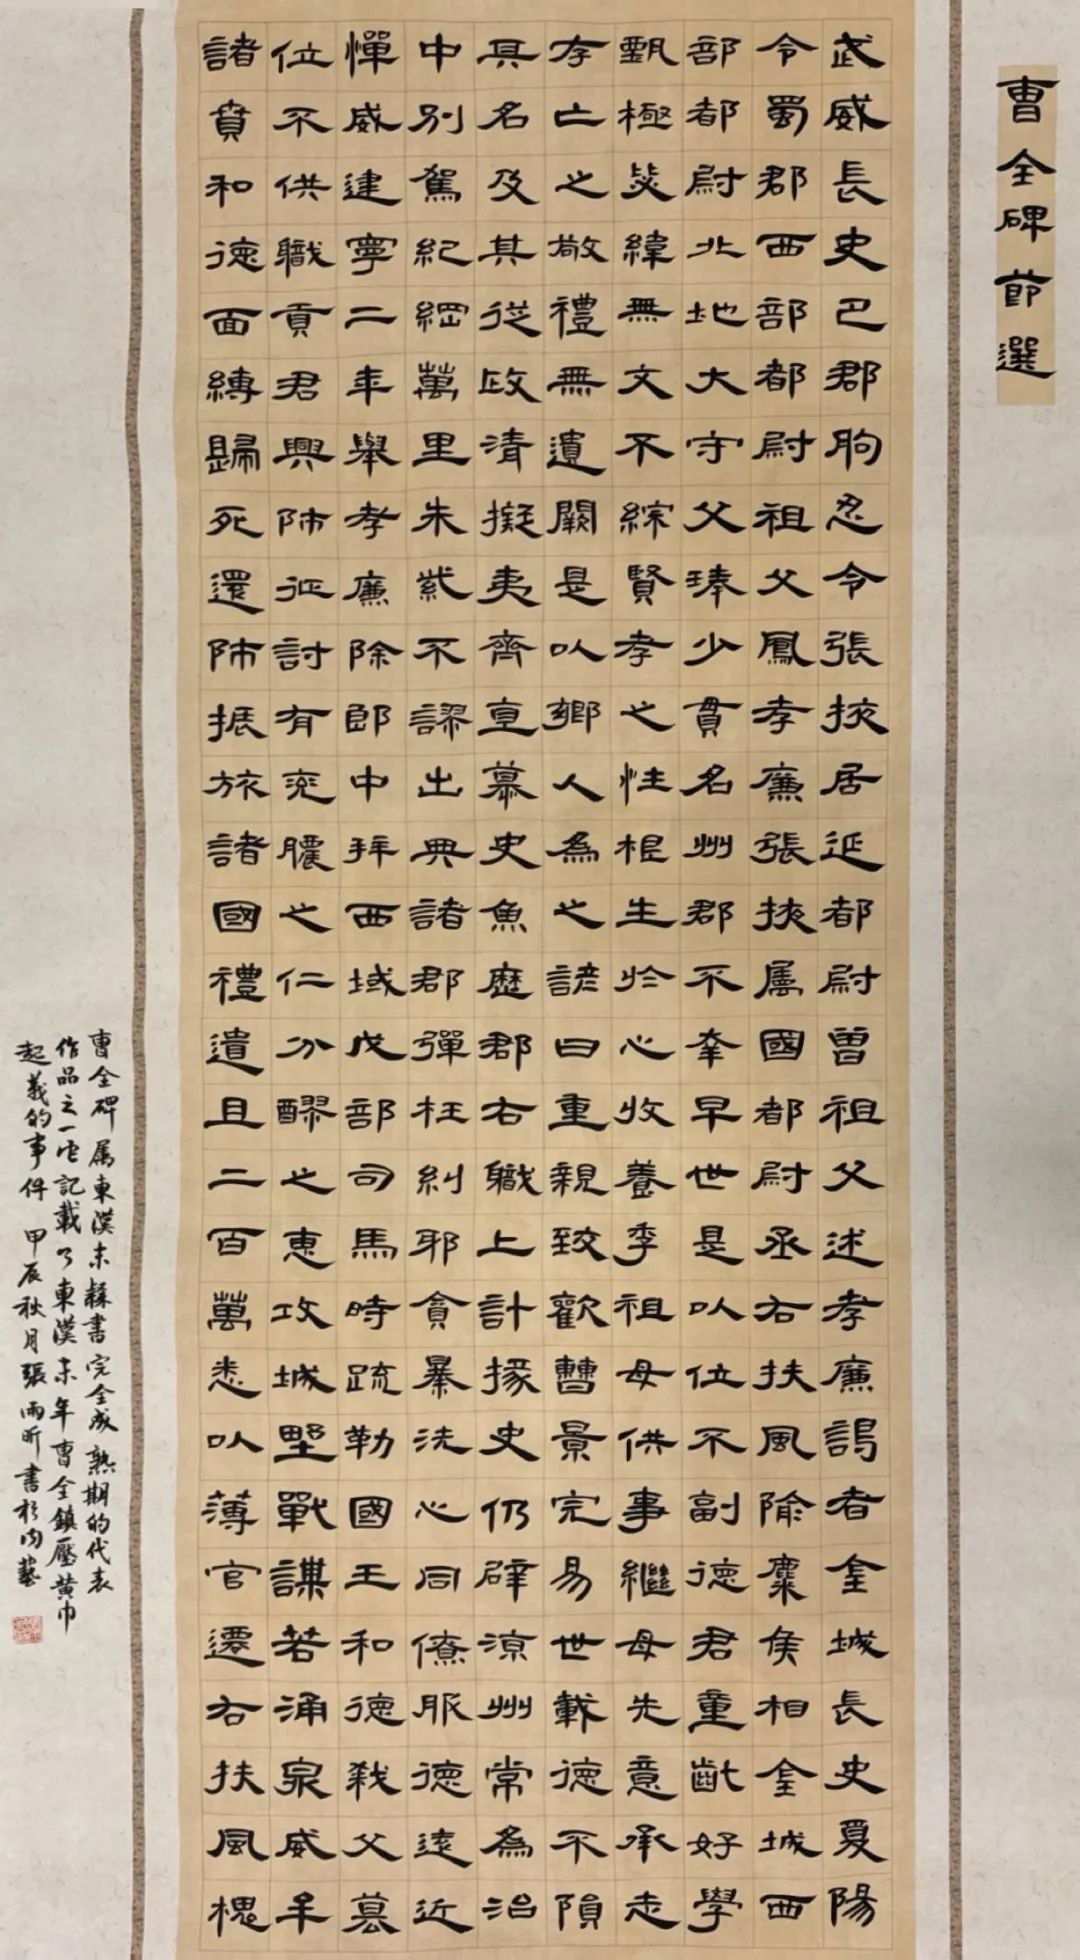 曹全碑節選
武威長史巴郡朐忍令張掖居延都尉曾祖父述孝廉謁者金城長史夏陽
令蜀郡西部都尉祖父鳳孝廉張掖属國都尉丞右扶風隃麋侯相金城西
部都尉北地大守父琫少貫名州郡不幸早世是以位不副德君童齔好學
甄極毖緯無文不綜賢孝之性根生於心收養季祖母供事繼母先意承志
存亡之敬禮無遺闕是以鄉人為之諺曰重親致歡曹景完易世載德不隕
其名及其從政清擬夷齊直慕史魚歷郡右職上計掾史仍辟涼州常為治
中別駕紀綱萬里朱紫不謬出典諸郡彈枉糾邪貪暴洗心同僚服德遠近
憚威建寧二年舉孝廉除郎中拜西域戊部司馬時疏勒國王和德弒父篡
位不供職貢君興師征討有兗膿之仁分醪之惠攻城野戰謀若涌泉威牟
諸賁和德面縛歸死還師振旅諸國禮遺且二百萬悉以薄官遷右扶風槐
曹全碑属東漢末隸書完全成熟期的代表
作品之一它記載了東漢末年曹全鎮壓黃巾
起義的事件 甲辰秋月張雨昕書於